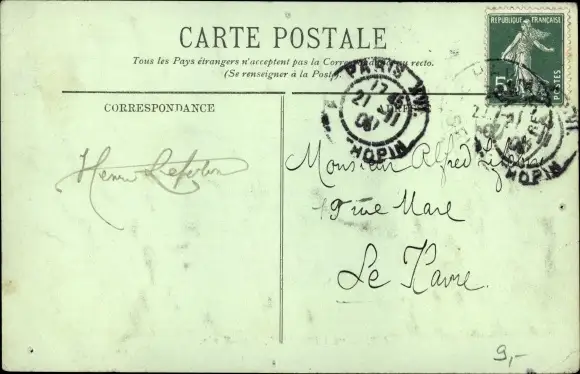 CARTE POSTALE
Tous les Pays étrangers n'acceptent pas la Correspondance au recto.
(Se renseigner à la Poste)
REPUBLIQUE FRANÇAISE
5c
POSTES
PARIS XVI.
21 -11
CHOPIN
CORRESPONDANCE
Henri
Monsieur Alfred
19 rue Mare
Le Havre.
9,-